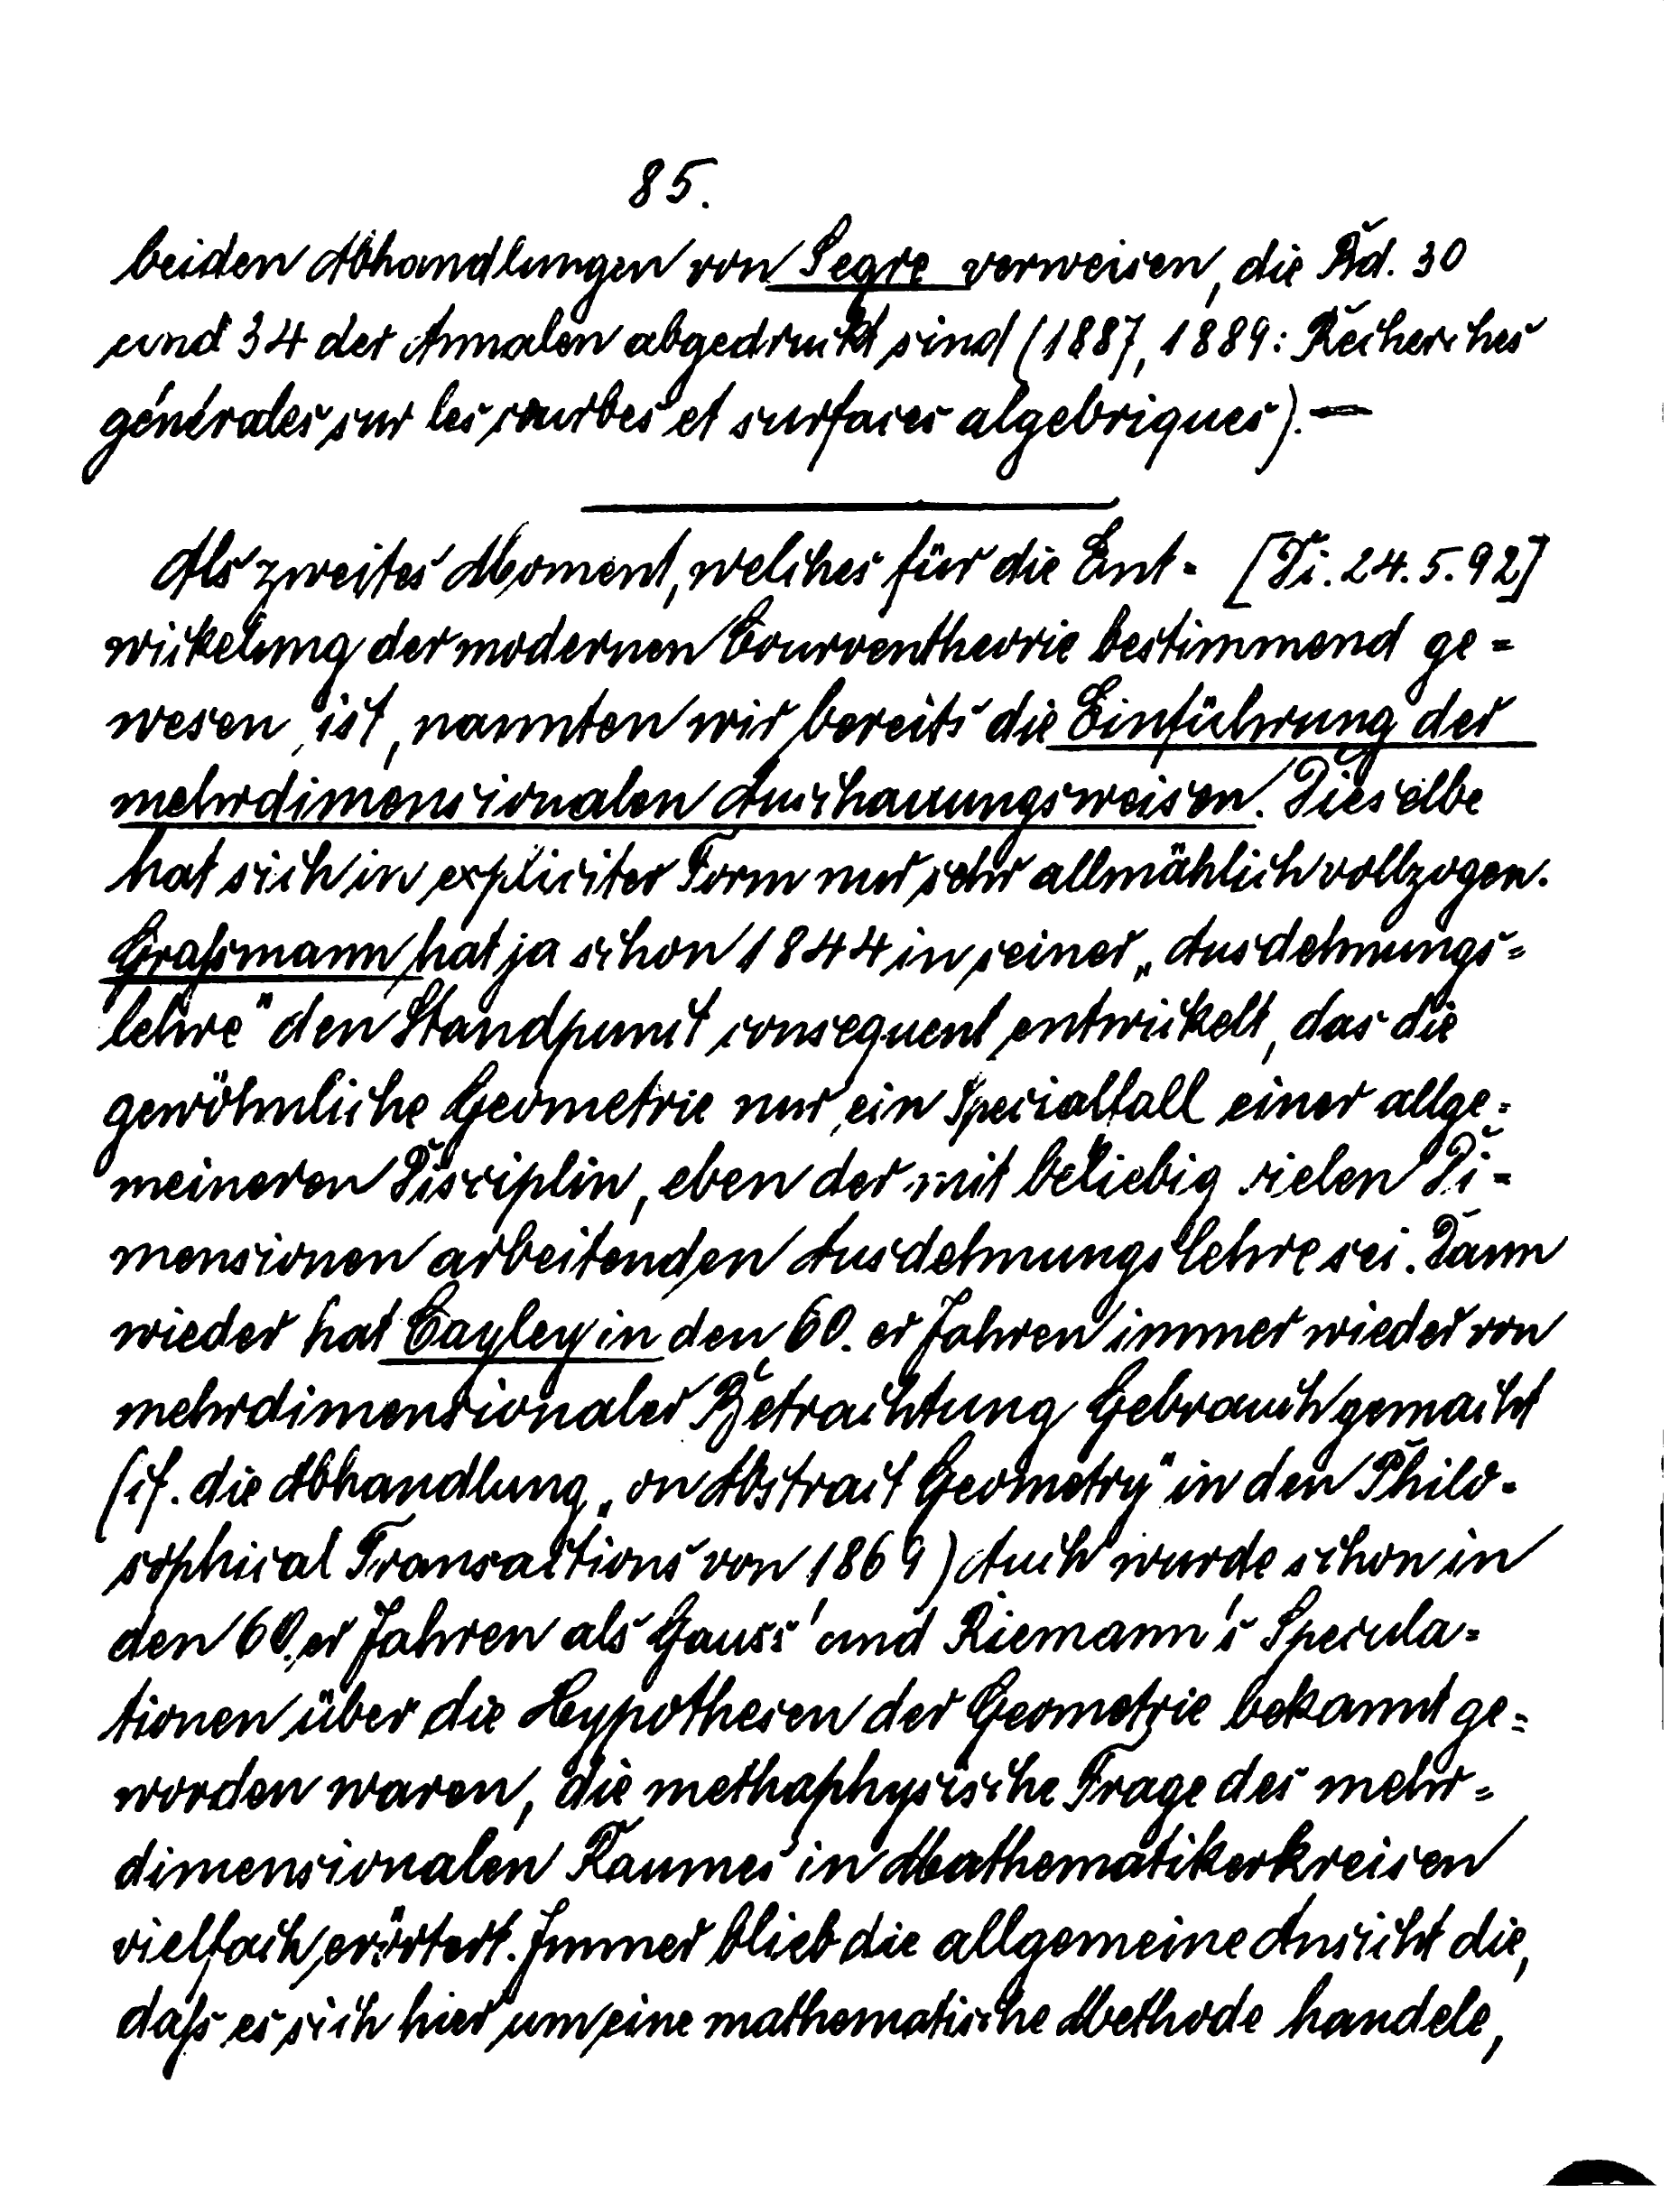 85.
beiden Abhandlungen von Segre verweisen, die Bd. 30
und 34 der Annalen abgedruckt sind (1887, 1889: Recherches
générales sur les courbes et surfaces algebriques). —
Als zweites Moment, welches für die Ent- [Di. 24.5.92]
wickelung der modernen Courventheorie bestimmend ge-
wesen ist, nannten wir bereits die Einführung der
mehrdimensionalen Anschauungsweisen. Dieselbe
hat sich in expliciter Form nur sehr allmählich vollzogen.
Graßmann hat ja schon 1844 in seiner „Ausdehnungs-
lehre" den Standpunct consequent entwickelt, das die
gewöhnliche Geometrie nur ein Specialfall einer allge-
meineren Disciplin, eben der mit beliebig vielen Di-
mensionen arbeitenden Ausdehnungslehre sei. Dann
wieder hat Cayley in den 60. er Jahren immer wieder von
mehrdimensionaler Betrachtung Gebrauch gemacht
(cf. die Abhandlung „on Abstract Geometry" in den Philo-
sophical Transactions von 1869) Auch wurde schon in
den 60. er Jahren als Gauss' und Riemann's Specula-
tionen über die Hypothesen der Geometrie bekannt ge-
worden waren, die methaphysische Frage des mehr-
dimensionalen Raumes in Mathematikerkreisen
vielfach erörtert. Immer blieb die allgemeine Ansicht die,
daß es sich hier um eine mathematische Methode handele,